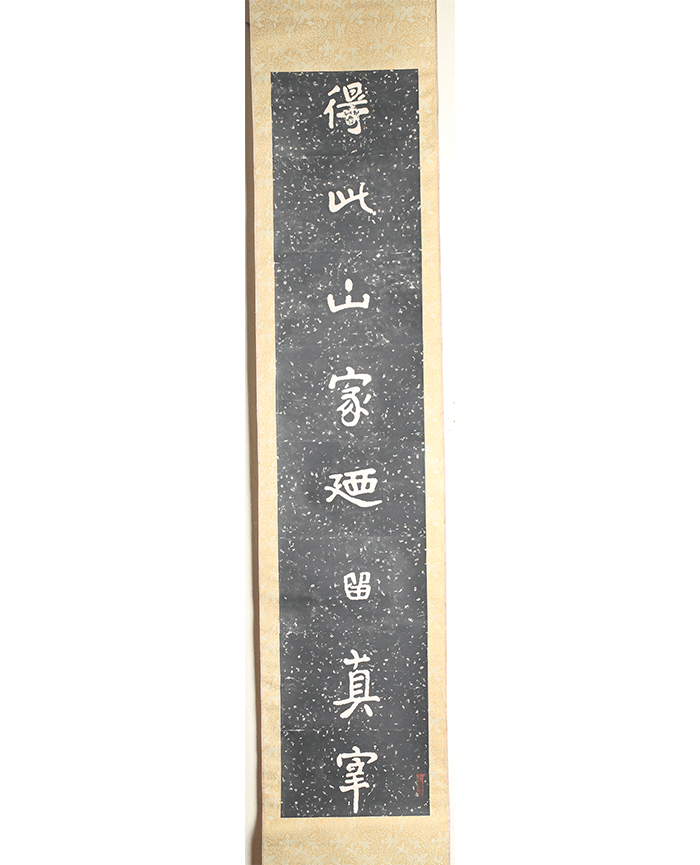 得此山家廼留真宰